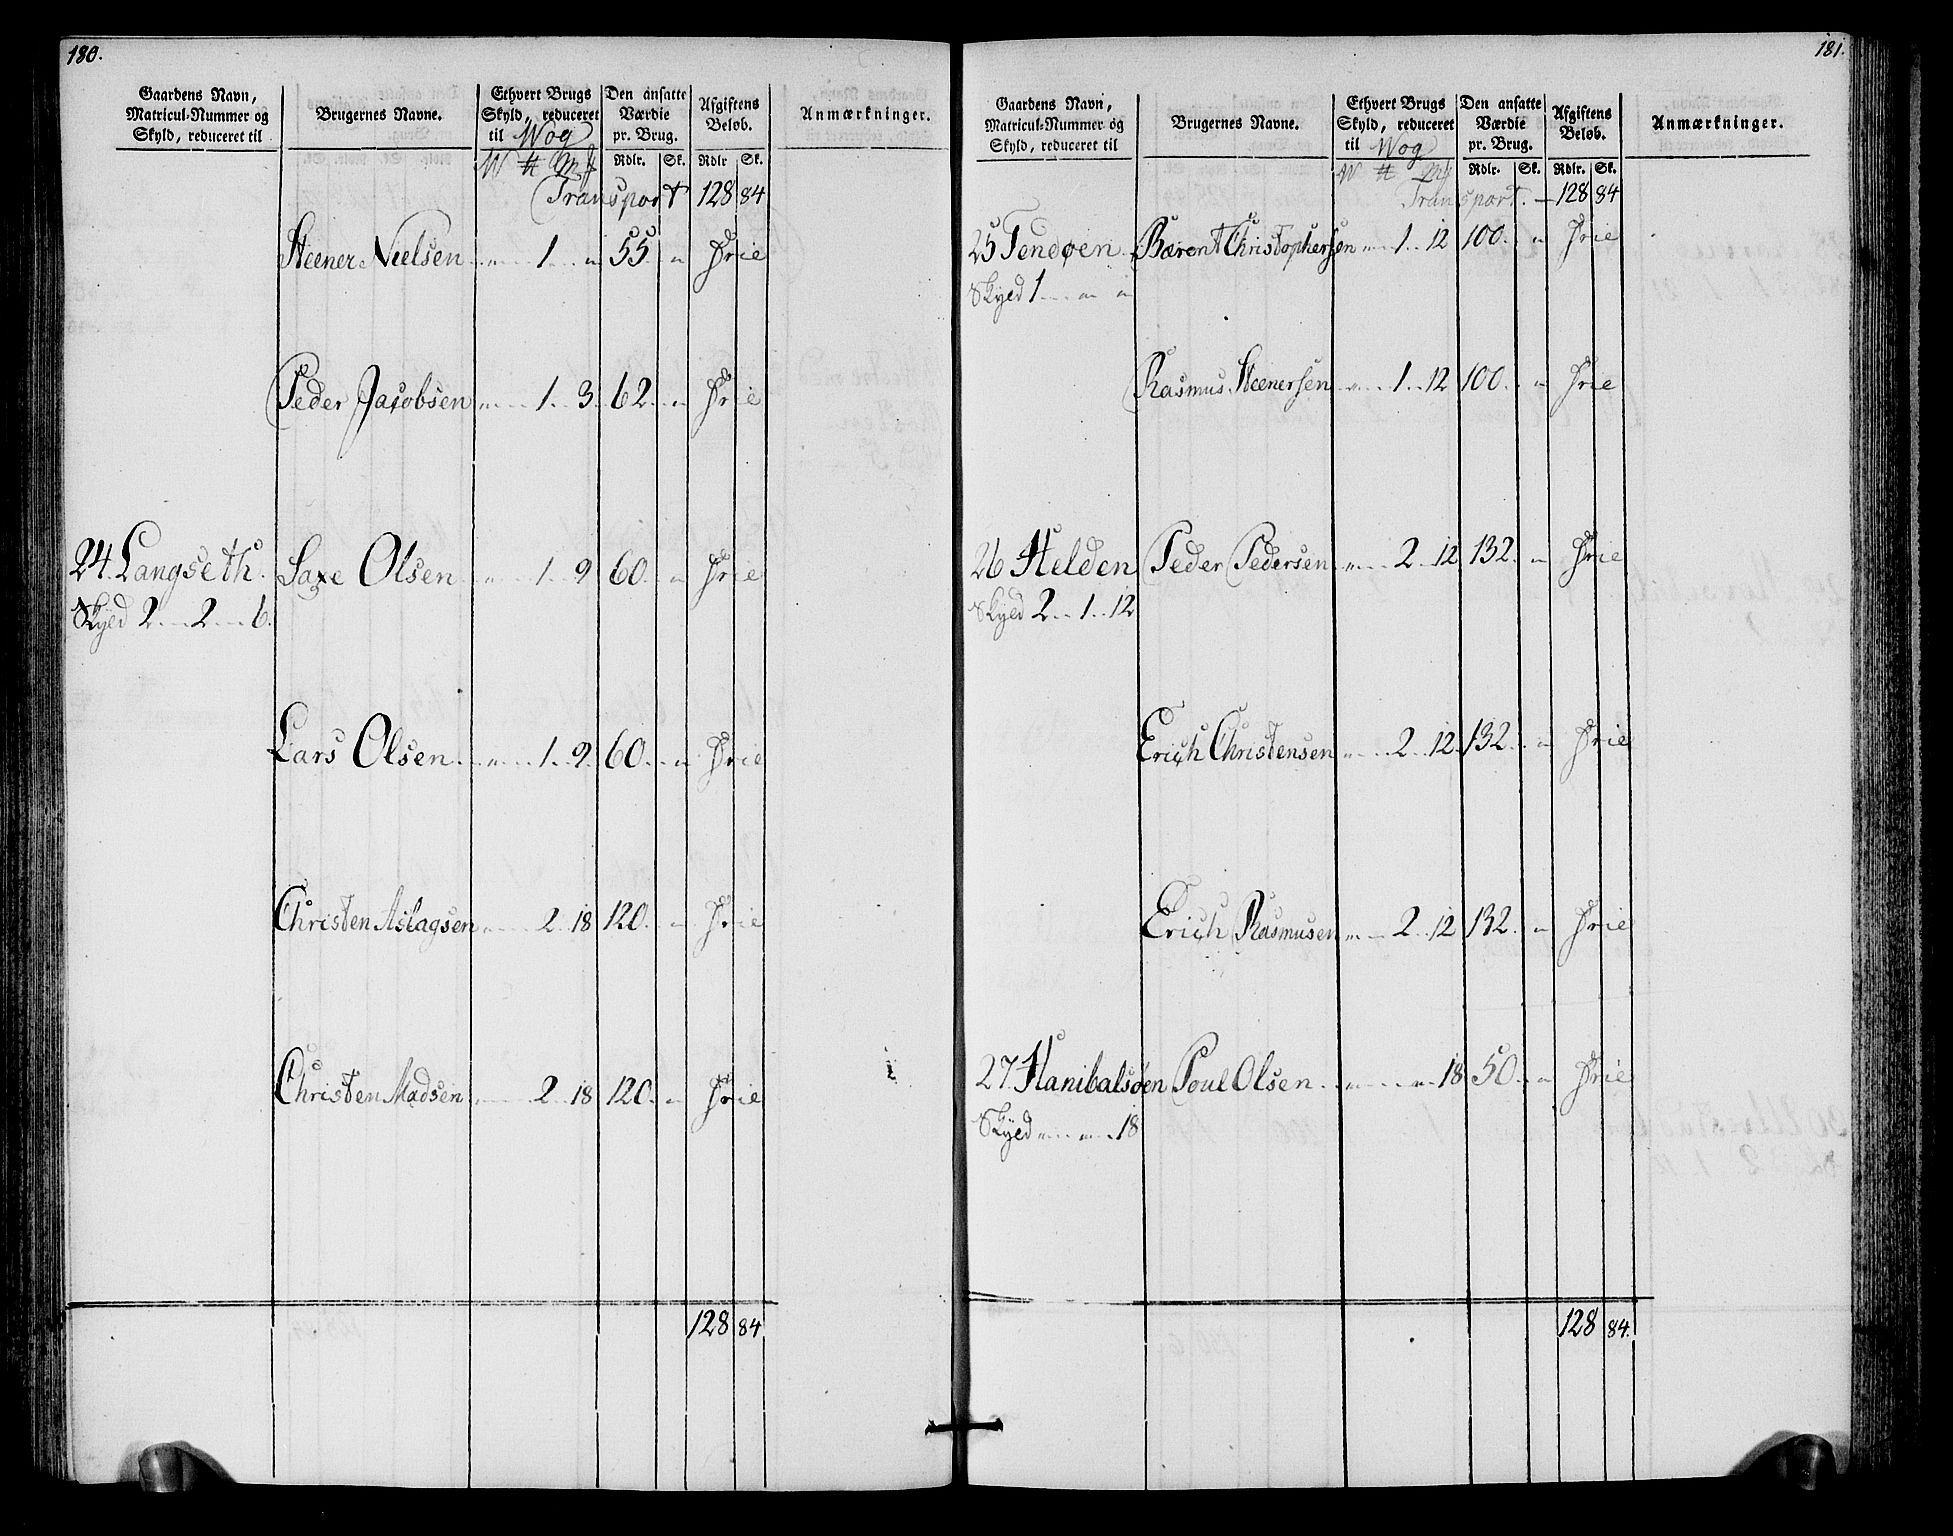 180.
Gaardens Navn, Matricul-Nummer og Skyld, reduceret til
Brugernes Navne.
Ethvert Brugs Skyld, reduceret til Wog
Den ansatte Værdie pr. Brug.
Afgiftens Beløb.
Anmærkninger.
Rdlr. Sk. Rdlr Sk.
Transport 128 84
Steener Nielsen " 1 " 55 " frie
Peder Jacobsen " 1 3 62 " frie
24. Langseth. Saxe Olsen " 1 9 60 " frie
Skyld 2 2 6.
Lars Olsen " 1 9 60 " frie
Christen Aslagsen " 2 18 120 " frie
Christen Madsen " 2 18 120 " frie
128 84
181.
Gaardens Navn, Matricul-Nummer og Skyld, reduceret til
Brugernes Navne.
Ethvert Brugs Skyld, reduceret til Wog
Den ansatte Værdie pr. Brug.
Afgiftens Beløb.
Anmærkninger.
Rdlr. Sk. Rdlr. Sk.
Transport. 128 84
25 Tendøen Bærent Christophersen " 1 12 100 " frie
Skyld 1 " "
Rasmus Steenersen " 1 12 100 " frie
26 Helden Peder Pedersen " 2 12 132 " frie
Skyld 2 1 12
Erich Christensen " 2 12 132 " frie
Erich Rasmusen " 2 12 132 " frie
27 Hanibalsøen Poul Olsen " " 18 50 " frie
Skyld " " 18
128 84.